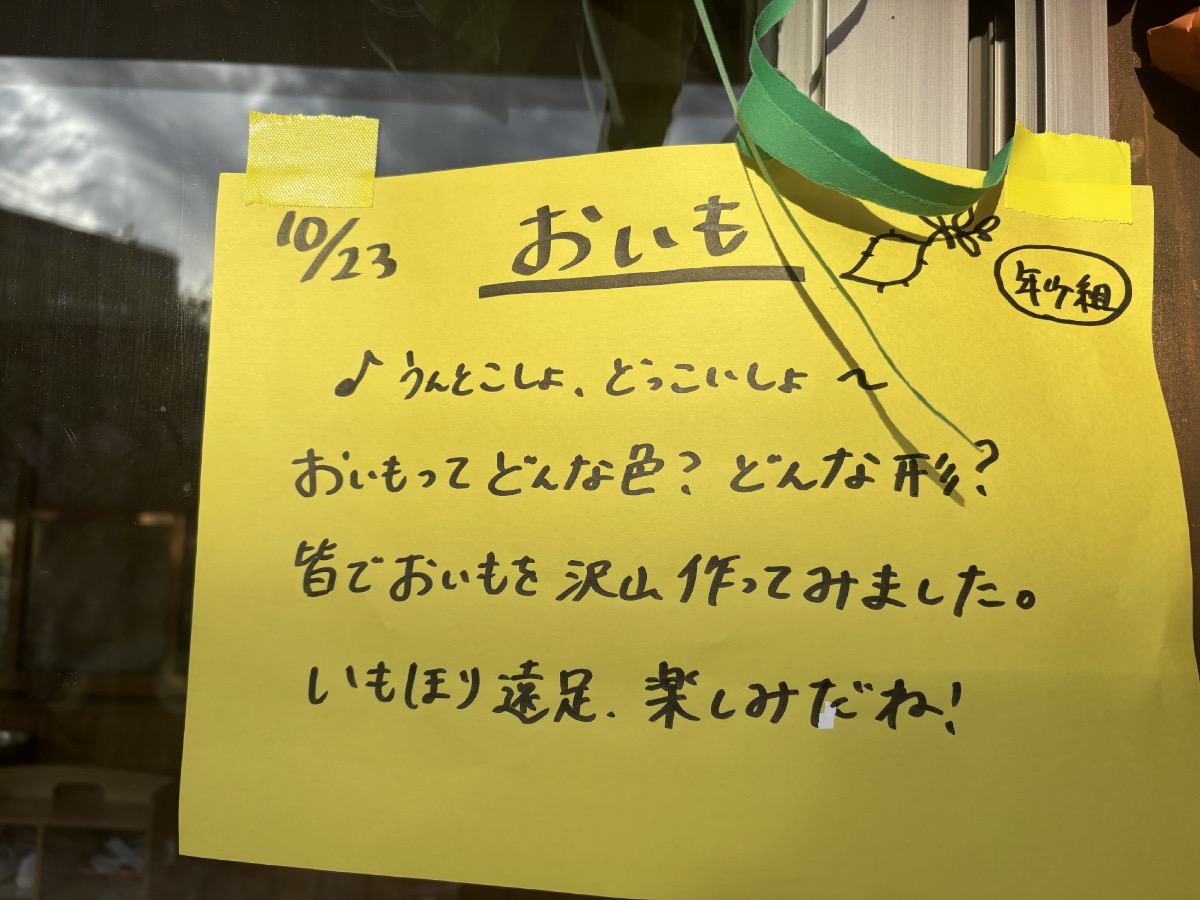 10/23 おいも 年少組
♪うんとこしょ、どっこいしょ〜
おいもってどんな色?どんな形?
皆でおいもを沢山作ってみました。
いもほり遠足、楽しみだね!